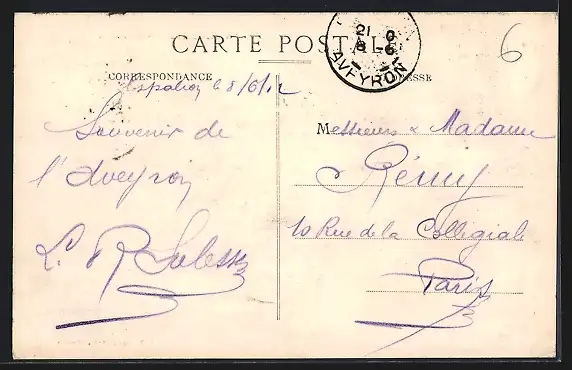 CARTE POSTALE
21 0
8-6
AVEYRON
6
CORRESPONDANCE
Espalion le 8/6/12
Souvenir de
l'Aveyron
L. R
ADRESSE
Messieurs & Madame
Rémy
10 Rue de la Collégiale
Paris